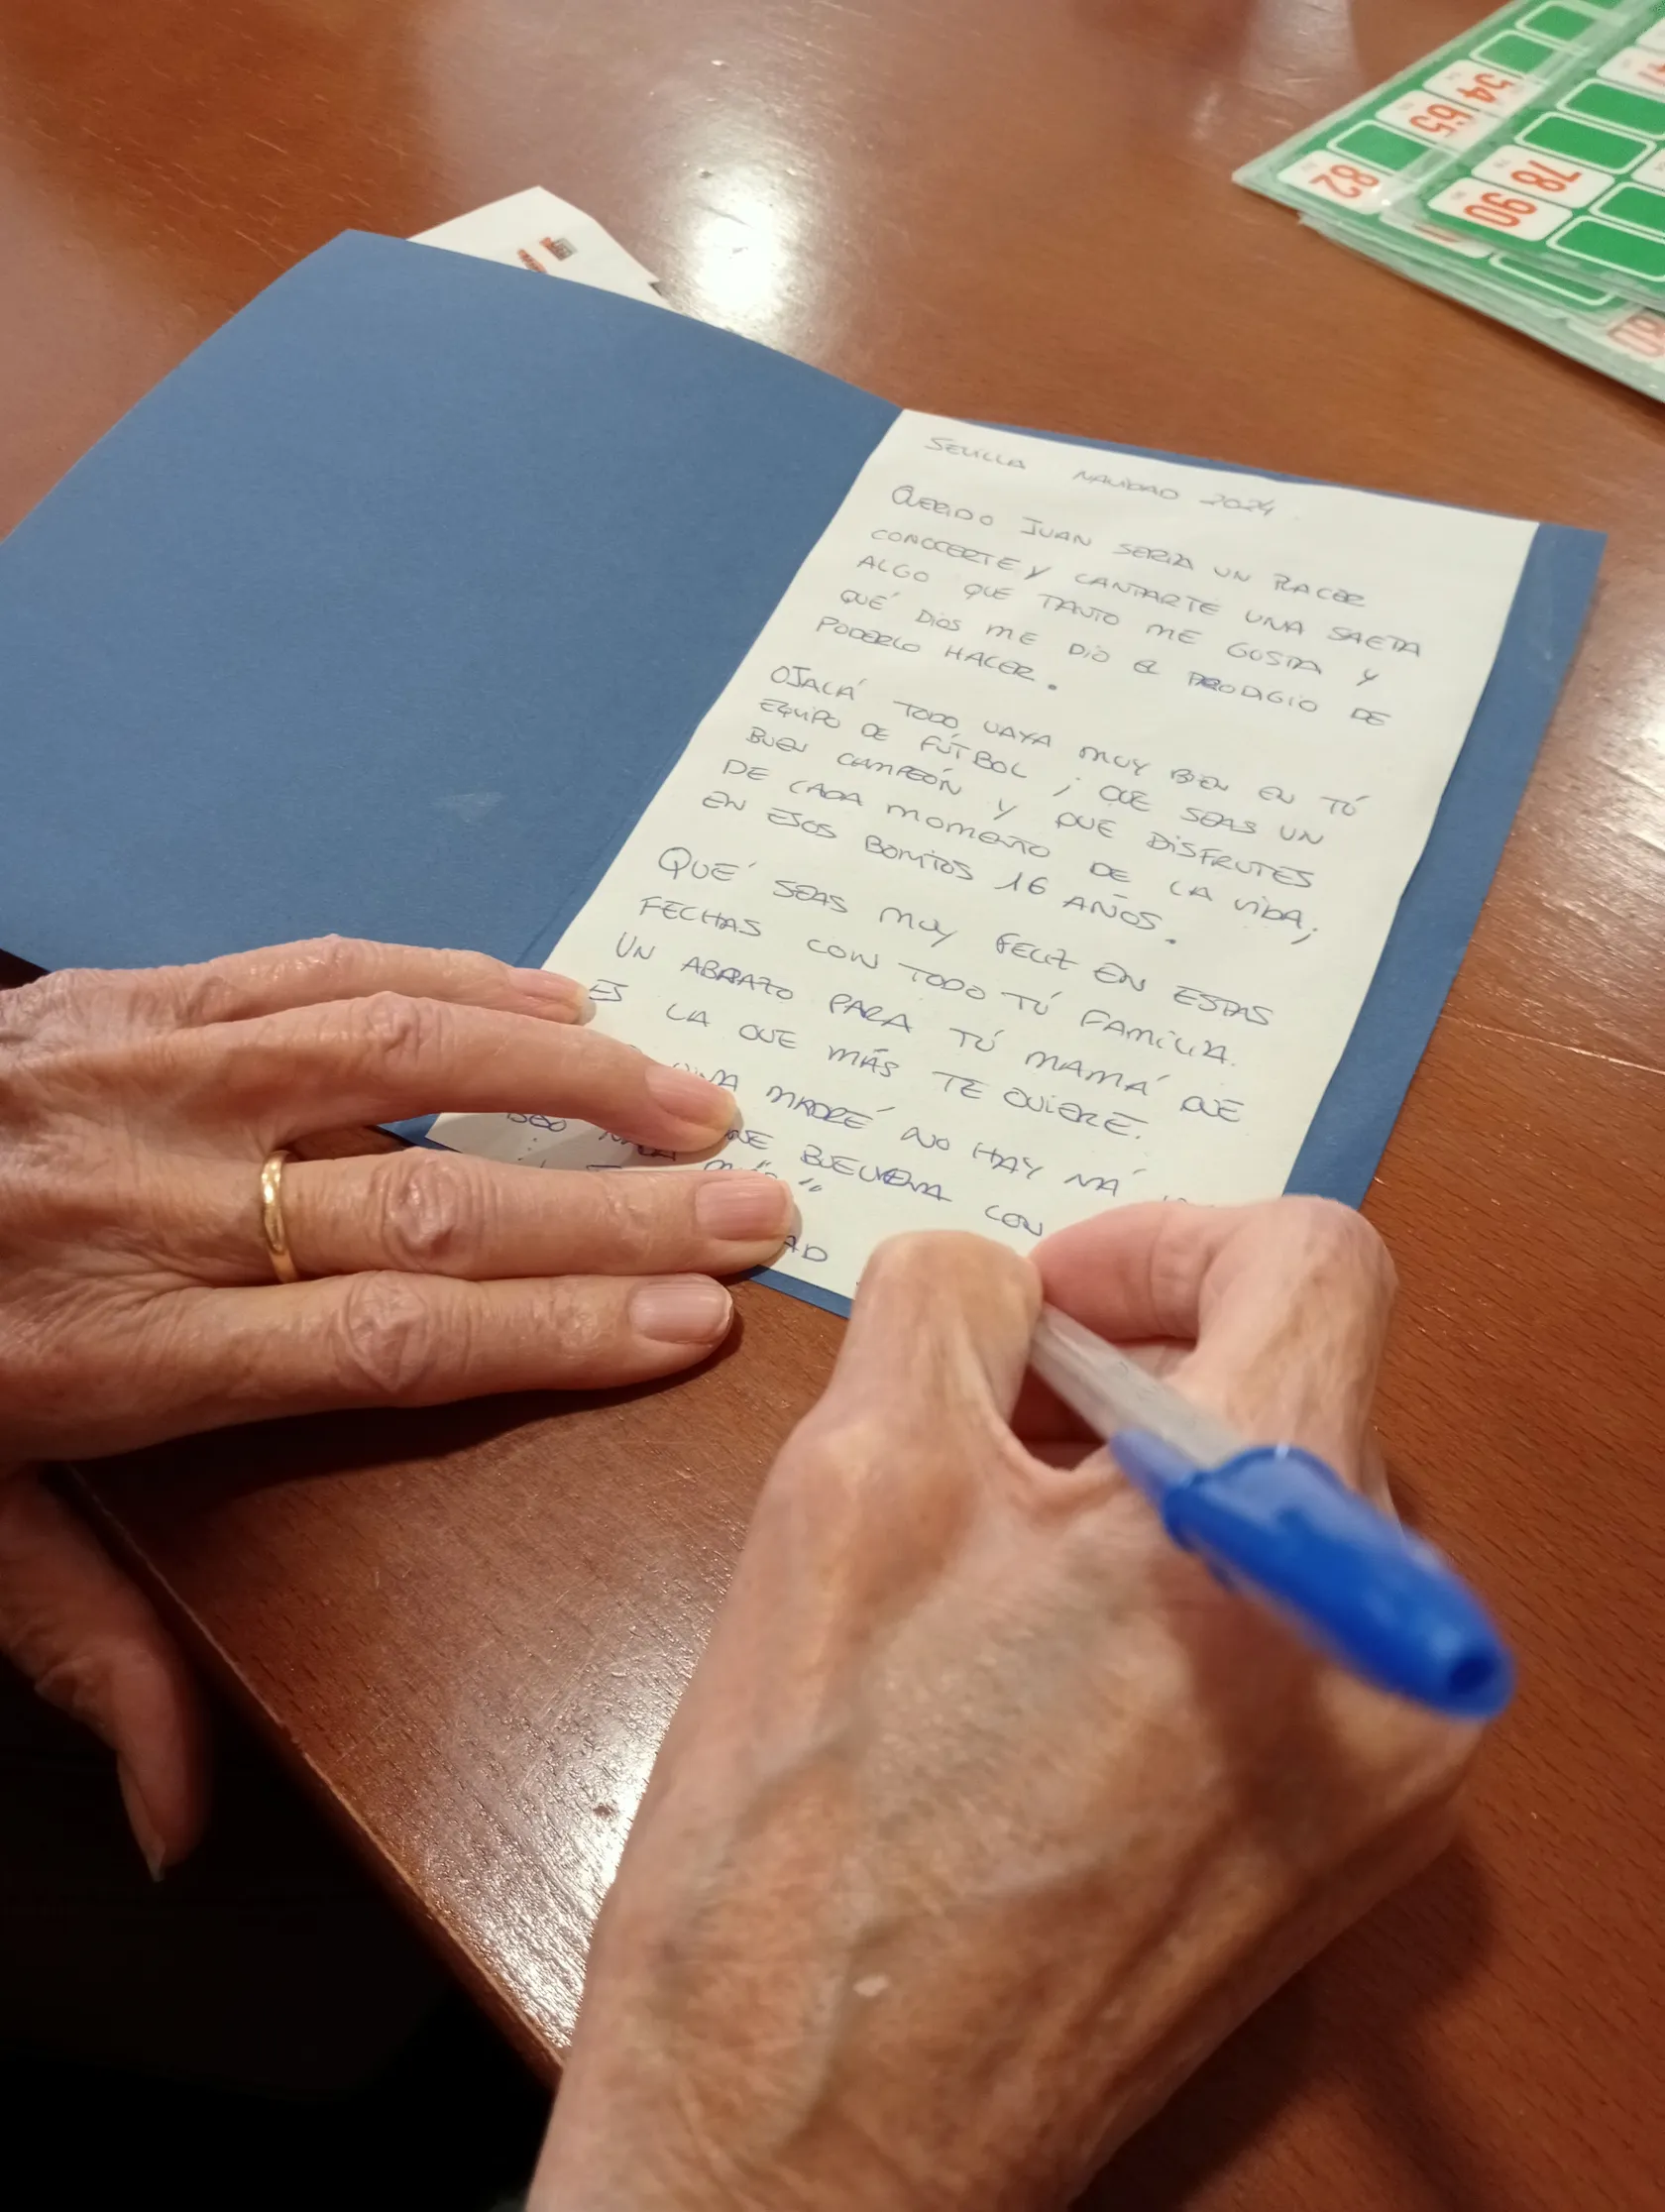 SEVILLA NAVIDAD 2024
QUERIDO JUAN SERIA UN PLACER
CONOCERTE Y CANTARTE UNA SAETA
ALGO QUE TANTO ME GUSTA Y
QUÉ DIOS ME DIO EL PRODIGIO DE
PODERLO HACER.
OJALÁ TODO VAYA MUY BIEN EN TÚ
EQUIPO DE FÚTBOL ; QUE SEAS UN
BUEN CAMPEÓN Y QUE DISFRUTES
DE CADA MOMENTO DE LA VIDA,
EN ESOS BONITOS 16 AÑOS.
QUÉ SEAS MUY FELIZ EN ESTAS
FECHAS CON TODO TÚ FAMILIA.
UN ABRAZO PARA TÚ MAMÁ QUE
ES LA QUE MÁS TE QUIERE.
MADRÉ NO HAY NÁ
BUEVENA CON
AD
54 65
82
78
90